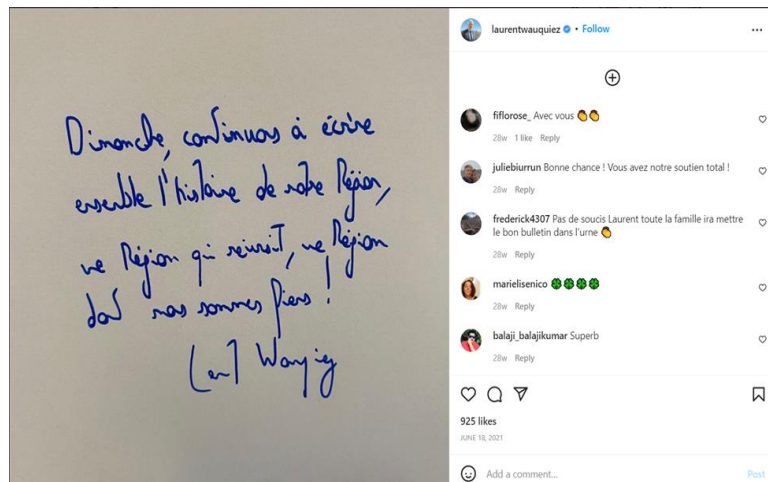 Dimanche, continuons à écrire
ensemble l'histoire de notre Région,
une Région qui réussit, une Région
dont nous sommes fiers !
Laurent Wauquiez
laurentwauquiez • Follow
fiflorose_ Avec vous 👏👏
28w 1 like Reply
juliebiurrun Bonne chance ! Vous avez notre soutien total !
28w Reply
frederick4307 Pas de soucis Laurent toute la famille ira mettre
le bon bulletin dans l'urne 👏
28w Reply
marielisenico 🍀🍀🍀🍀
28w Reply
balaji_balajikumar Superb
28w Reply
925 likes
JUNE 18, 2021
Add a comment...
Post